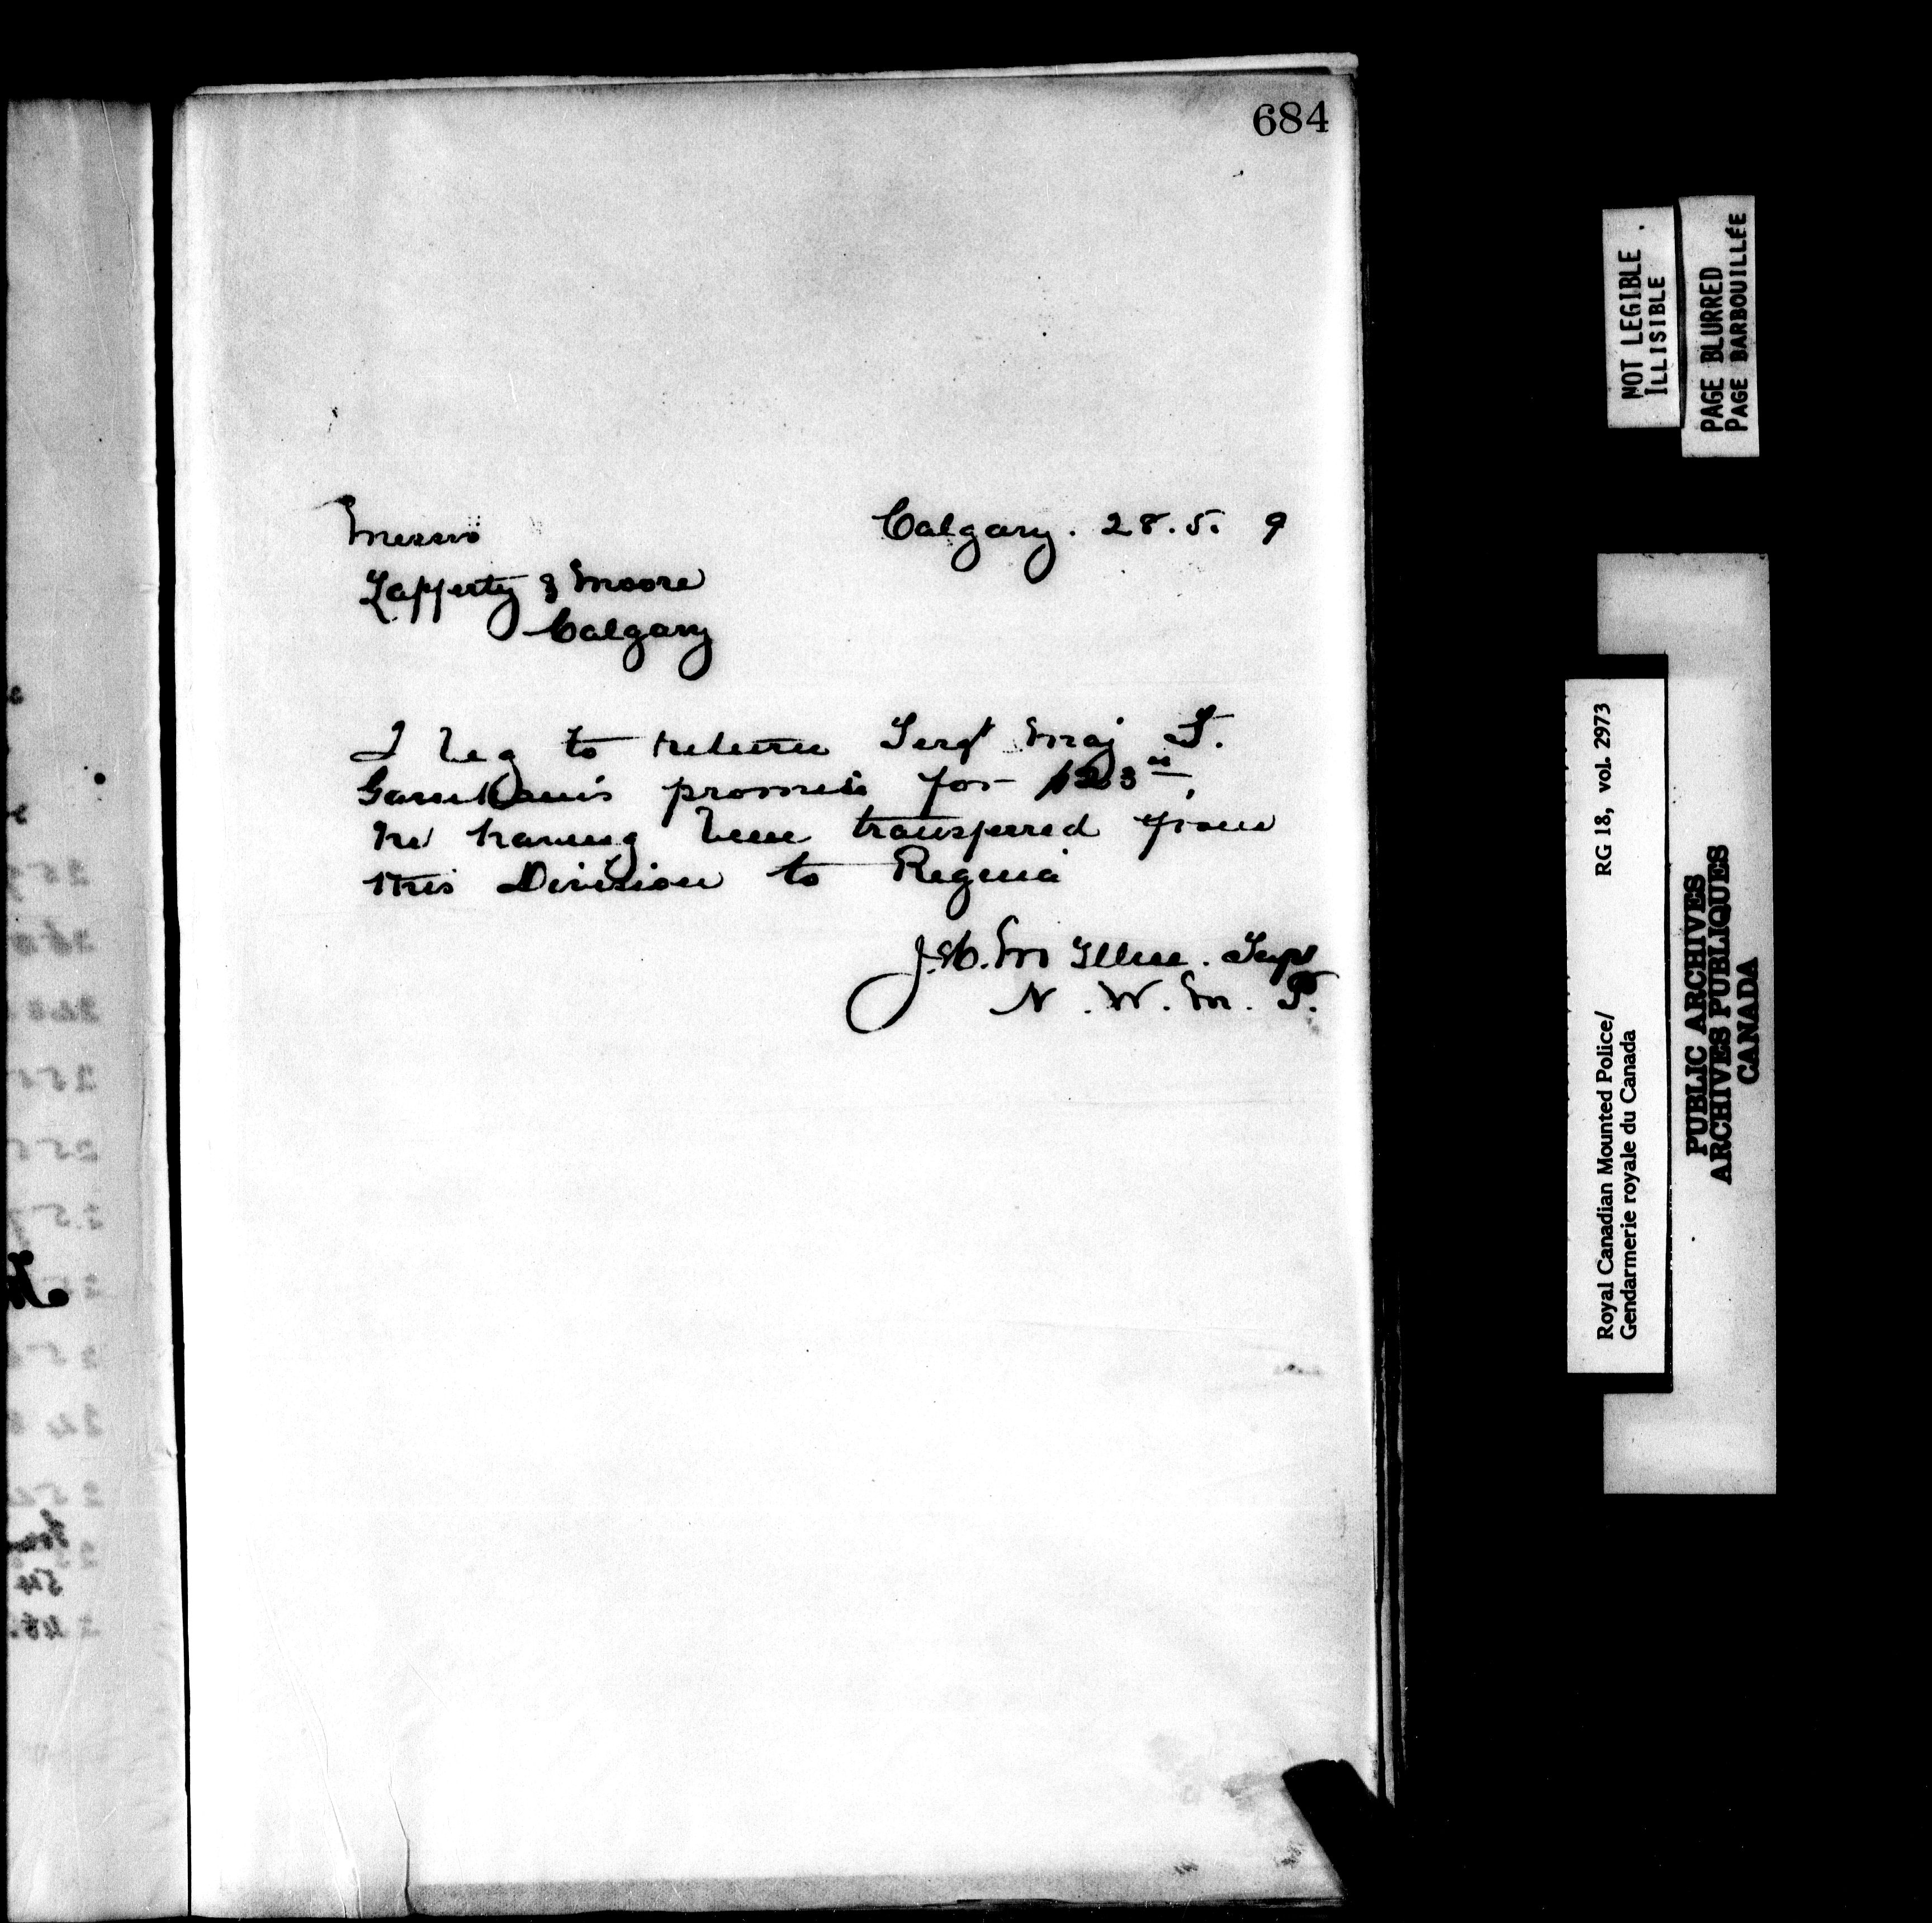 684
Messrs
Calgary. 28.5. 9
Lafferty & Moore
Calgary
I beg to return Sergt Maj S.
promise for $23
he having been transferred from
this Division to Regina
J.H. McIllree. Supt
N. W. M. P.
NOT LEGIBLE
ILLISIBLE
PAGE BLURRED
PAGE BARBOUILLÉE
RG 18, vol. 2973
Royal Canadian Mounted Police/
Gendarmerie royale du Canada
PUBLIC ARCHIVES
ARCHIVES PUBLIQUES
CANADA